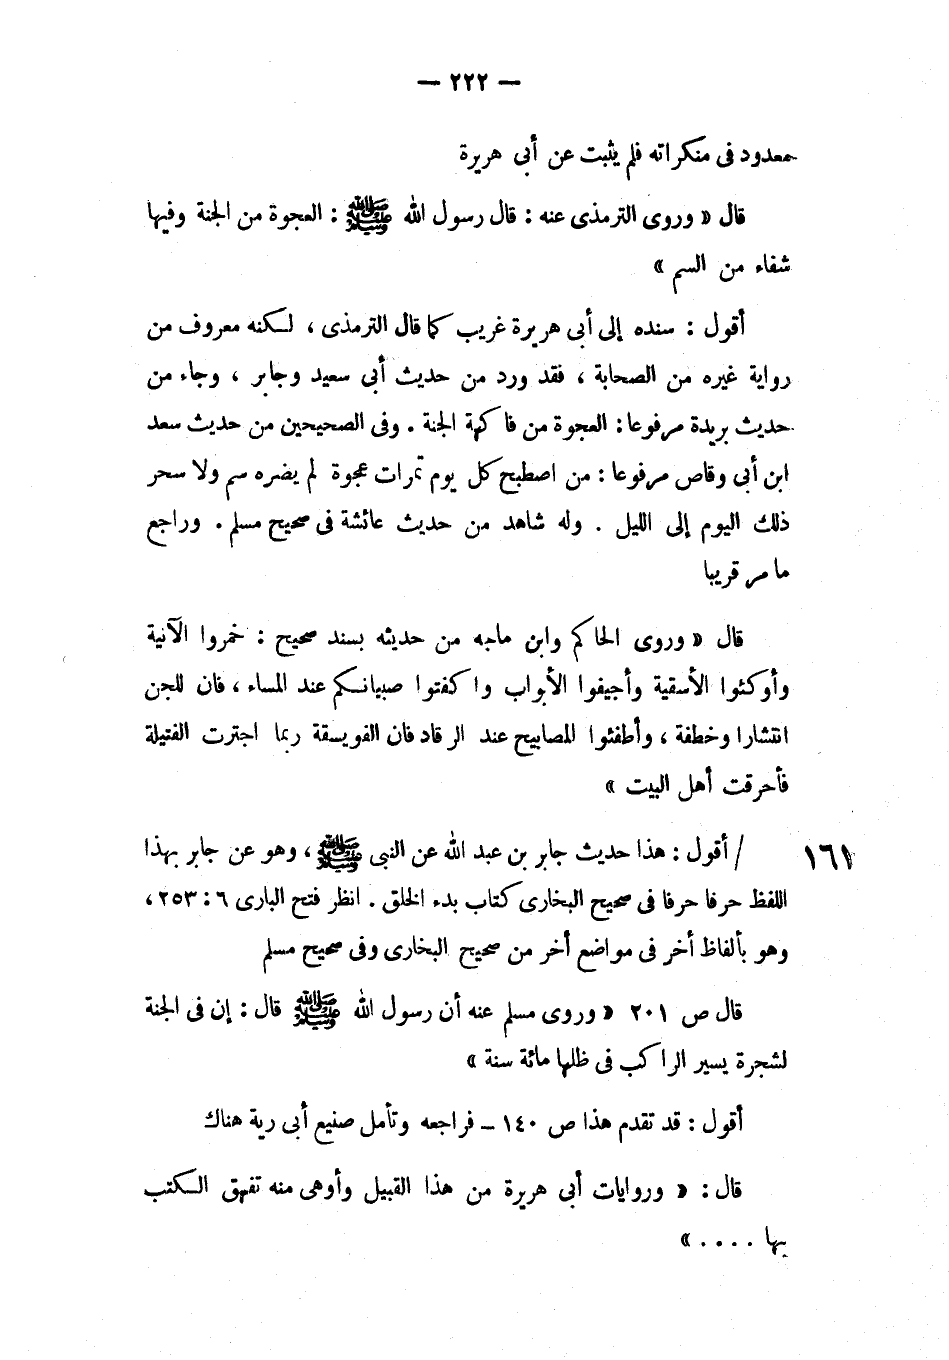 — ٢٢٢ —
معدود فى منكراته فلم يثبت عن أبى هريرة
قال « وروى الترمذى عنه : قال رسول الله ﷺ : العجوة من الجنة وفيها
شفاء من السم »
أقول : سنده إلى أبى هريرة غريب كما قال الترمذى ، لكنه معروف من
رواية غيره من الصحابة ، فقد ورد من حديث أبى سعيد وجابر ، وجاء من
حديث بريدة مرفوعا : العجوة من فاكهة الجنة . وفى الصحيحين من حديث سعد
ابن أبى وقاص مرفوعا : من اصطبح كل يوم تمرات عجوة لم يضره سم ولا سحر
ذلك اليوم إلى الليل . وله شاهد من حديث عائشة فى صحيح مسلم . وراجع
ما مر قريبا
قال « وروى الحاكم وابن ماجه من حديثه بسند صحيح : خمروا الآنية
وأوكئوا الأسقية وأجيفوا الأبواب واكفتوا صبيانكم عند المساء ، فان للجن
انتشارا وخطفة ، وأطفئوا المصابيح عند الرقاد فان الفويسقة ربما اجترت الفتيلة
فأحرقت أهل البيت »
١٦١ / أقول : هذا حديث جابر بن عبد الله عن النبى ﷺ ، وهو عن جابر بهذا
اللفظ حرفا حرفا فى صحيح البخارى كتاب بدء الخلق . انظر فتح البارى ٦ : ٢٥٣ ،
وهو بألفاظ أخر فى مواضع أخر من صحيح البخارى وفى صحيح مسلم
قال ص ٢٠١ « وروى مسلم عنه أن رسول الله ﷺ قال : إن فى الجنة
لشجرة يسير الراكب فى ظلها مائة سنة »
أقول : قد تقدم هذا ص ١٤٠ – فراجعه وتأمل صنيع أبى رية هناك
قال : « وروايات أبى هريرة من هذا القبيل وأوهى منه تفهق الكتب
بها . . . . »